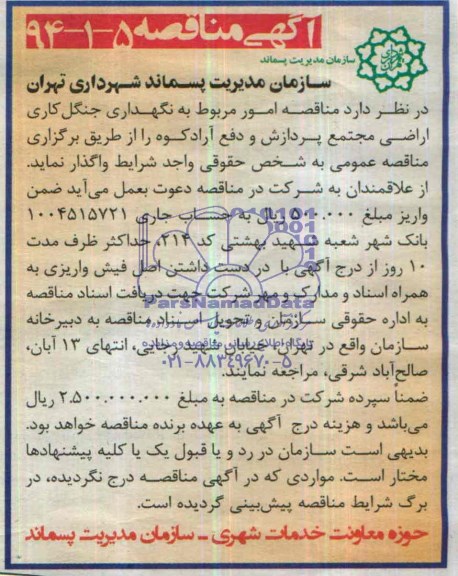 آگهی مناقصه ۵-۱-۹۴
سازمان مدیریت پسماند
سازمان مدیریت پسماند شهرداری تهران
در نظر دارد مناقصه امور مربوط به نگهداری جنگل کاری
اراضی مجتمع پردازش و دفع آرادکوه را از طریق برگزاری
مناقصه عمومی به شخص حقوقی واجد شرایط واگذار نماید.
از علاقمندان به شرکت در مناقصه دعوت بعمل می‌آید ضمن
واریز مبلغ ۵۰۰.۰۰۰ ریال به حساب جاری ۱۰۰۴۵۱۵۷۲۱
بانک شهر شعبه شهید بهشتی کد ۲۱۴، حداکثر ظرف مدت
۱۰ روز از درج آگهی با در دست داشتن اصل فیش واریزی به
همراه اسناد و مدارک و مهر شرکت جهت دریافت اسناد مناقصه
ParsNamadData
به اداره حقوقی سازمان و تحویل اسناد مناقصه به دبیرخانه
سازمان واقع در تهران، خیابان شهید رجایی، انتهای ۱۳ آبان،
صالح‌آباد شرقی، مراجعه نمایند.
۰۲۱-۸۸۳۴۹۶۷۰-۵
ضمناً سپرده شرکت در مناقصه به مبلغ ۲.۵۰۰.۰۰۰.۰۰۰ ریال
می‌باشد و هزینه درج آگهی به عهده برنده مناقصه خواهد بود.
بدیهی است سازمان در رد و یا قبول یک یا کلیه پیشنهادها
مختار است. مواردی که در آگهی مناقصه درج نگردیده، در
برگ شرایط مناقصه پیش‌بینی گردیده است.
حوزه معاونت خدمات شهری ـ سازمان مدیریت پسماند